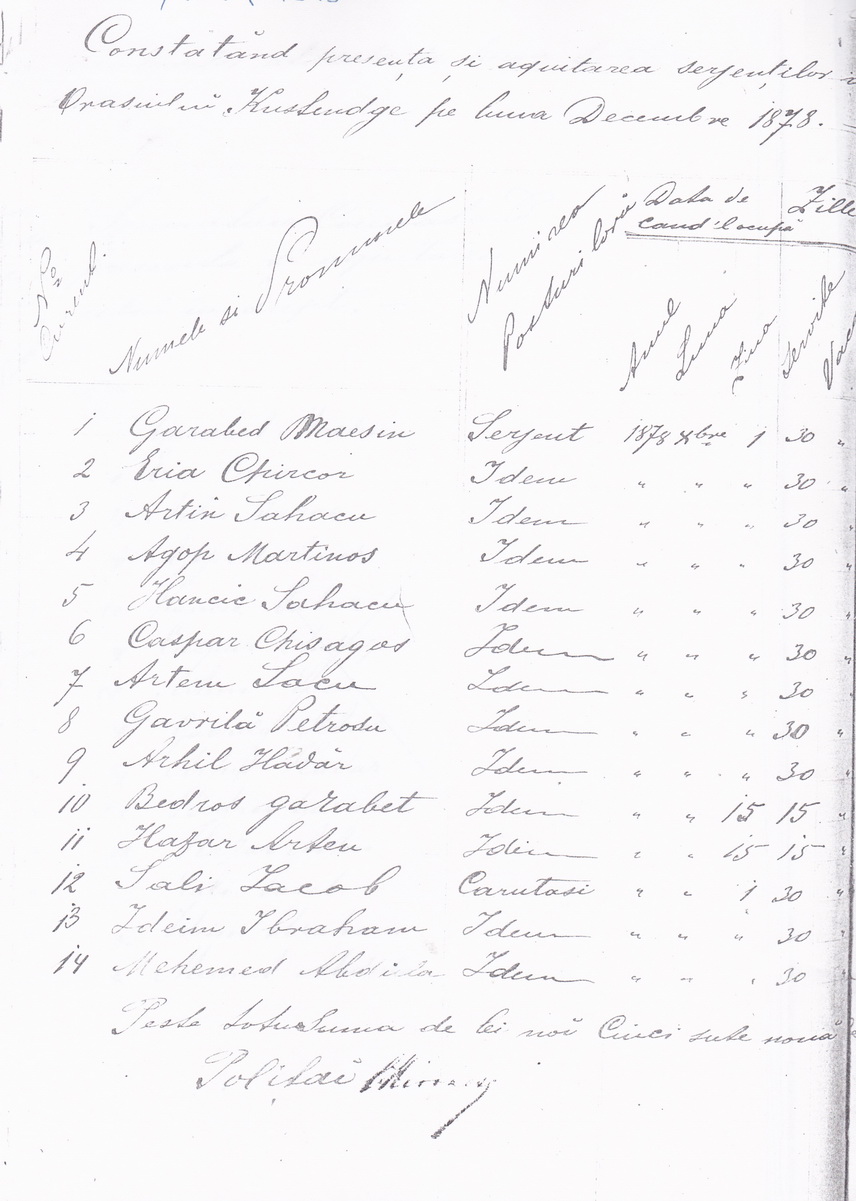 Constatând presența si aquitarea serjenților
Orasiului Kustendge pe luna Decembre 1878.
No Curent. Numele si Pronumele Numirea Posturilorŭ Data de cand'l ocupă Zille
Anul Luna Ziua Servite
1 Garabed Maesin Serjent 1878 Xbre 1 30 "
2 Eria Chircor Idem " " " 30 "
3 Artin Sahacu Idem " " " 30 "
4 Agop Martinos Idem " " " 30 "
5 Hancic Sahacu Idem " " " 30 "
6 Caspar Chisagos Idem " " " 30 "
7 Artem Sacu Idem " " " 30 "
8 Gavrilă Petrosu Idem " " " 30 "
9 Arhil Hădăr Idem " " " 30 "
10 Bedros garabet Idem " " 15 15 "
11 Hazar Arteu Idem " " 15 15 "
12 Sali Iacob Carutasi " " 1 30 "
13 Ideim Ibraham Idem " " " 30 "
14 Mehemed Abdila Idem " " " 30 "
Peste totu Suma de lei noi Cinci sute nouă
Polițai